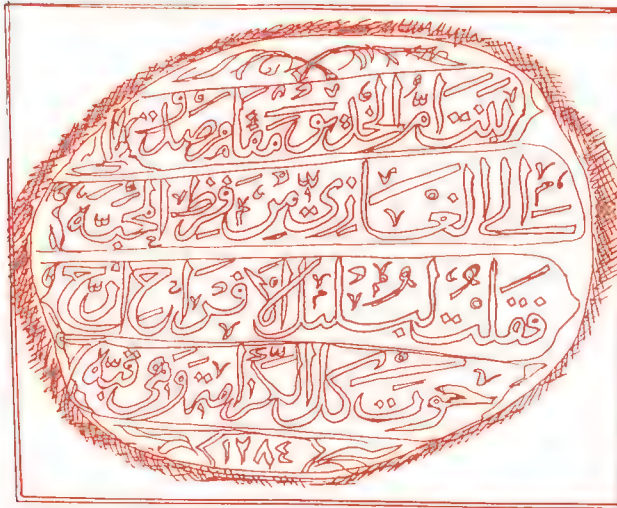 بنت ام الخديوي مقام صدق
الى الغازي من فرط المحبة
فقلت لبلبل الافراح ارخ
حوت كل الكرامة وهي قبه
١٢٨٤